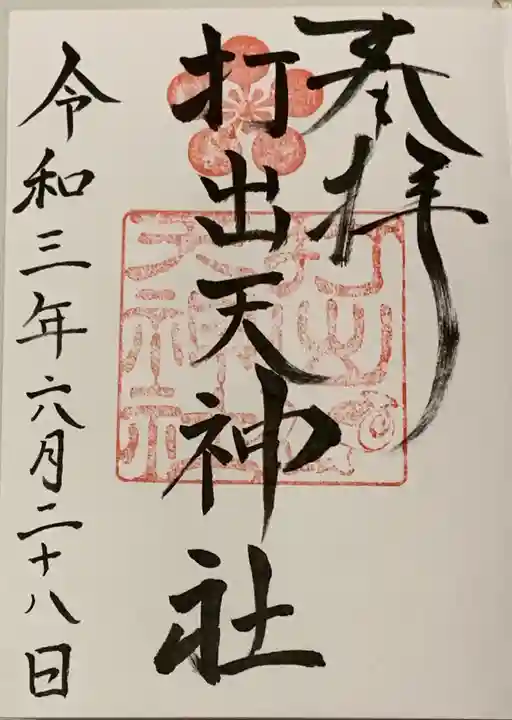 奉拝
打出天神社
令和三年六月二十八日